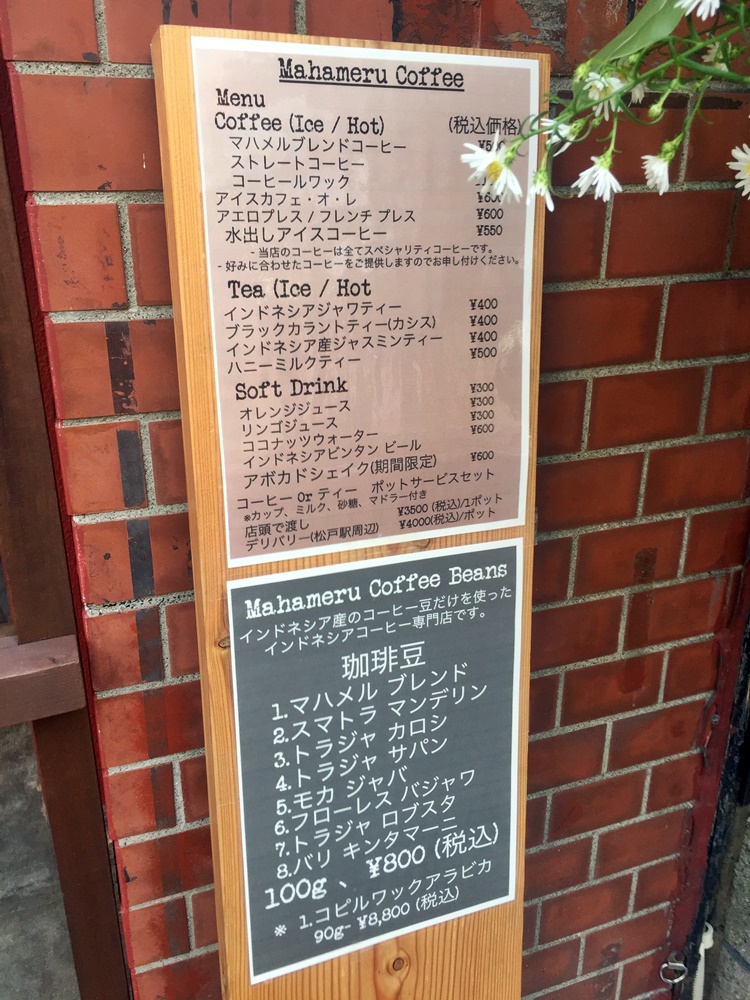 Mahameru Coffee
Menu
Coffee (Ice / Hot) (税込価格)
マハメルブレンドコーヒー
ストレートコーヒー
コーヒールワック
アイスカフェ・オ・レ
アエロプレス / フレンチ プレス ¥600
水出しアイスコーヒー ¥550
- 当店のコーヒーは全てスペシャリティコーヒーです。
- 好みに合わせたコーヒーをご提供しますのでお申し付けください。
Tea (Ice / Hot
インドネシアジャワティー ¥400
ブラックカラントティー(カシス) ¥400
インドネシア産ジャスミンティー ¥400
ハニーミルクティー ¥500
Soft Drink
オレンジジュース ¥300
リンゴジュース ¥300
ココナッツウォーター ¥300
インドネシアビンタン ビール ¥600
アボカドシェイク(期間限定) ¥600
コーヒー or ティー ポットサービスセット
※カップ、ミルク、砂糖、マドラー付き
店頭で渡し ¥3500 (税込)/1ポット
デリバリー(松戸駅周辺) ¥4000(税込)/ポット
Mahameru Coffee Beans
インドネシア産のコーヒー豆だけを使った
インドネシアコーヒー専門店です。
珈琲豆
1.マハメル ブレンド
2.スマトラ マンデリン
3.トラジャ カロシ
4.トラジャ サパン
5.モカ ジャバ
6.フローレス バジャワ
7.トラジャ ロブスタ
8.バリ キンタマーニ
100g 、 ¥800 (税込)
※ 1.コピルワックアラビカ
90g- ¥8,800 (税込)